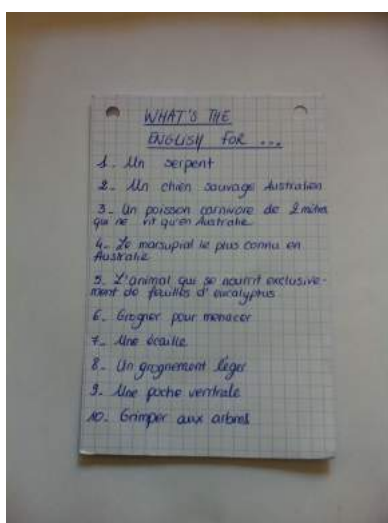 WHAT'S THE
ENGLISH FOR ...
1. Un serpent
2. Un chien sauvage Australien
3. Un poisson carnivore de 2 mètres
qui ne vit qu'en Australie
4. Le marsupial le plus connu en
Australie
5. L'animal qui se nourrit exclusive-
ment de feuilles d'eucalyptus
6. Grogner pour menacer
7. Une écaille
8. Un grognement léger
9. Une poche ventrale
10. Grimper aux arbres